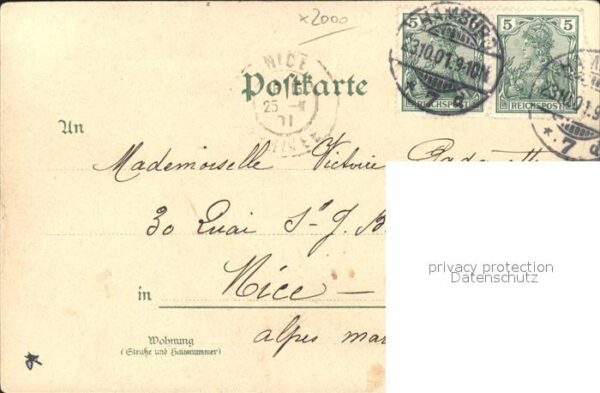 x2000
5 5 5
HAMBURG
23.10.01.9-10N.
* 7 d
REICHSPOST REICHSPOST
23.10.01.9
* 7 d
NICE
25
Postkarte
An
Mademoiselle Victoire
30 Quai St J. B
in Nice
Wohnung
(Straße und Hausnummer)
alpes mar
privacy protection
Datenschutz